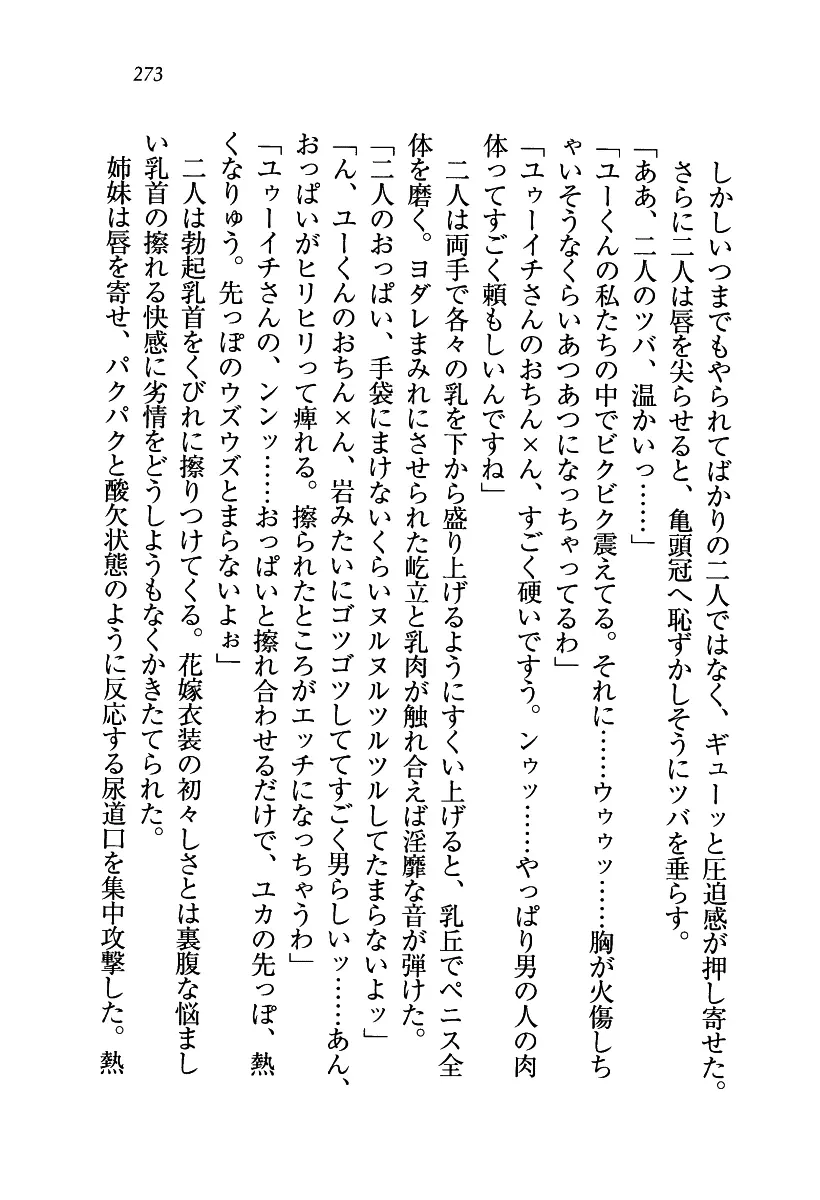 273
しかしいつまでもやられてばかりの二人ではなく、ギューッと圧迫感が押し寄せた。
さらに二人は唇を尖らせると、亀頭冠へ恥ずかしそうにツバを垂らす。
「ああ、二人のツバ、温かいっ……」
「ユーくんの私たちの中でビクビク震えてる。それに……ウゥゥッ……胸が火傷しち
ゃいそうなくらいあつあつになっちゃってるわ」
「ユゥーイチさんのおちん×ん、すごく硬いですう。ンゥッ……やっぱり男の人の肉
体ってすごく頼もしいんですね」
二人は両手で各々の乳を下から盛り上げるようにすくい上げると、乳丘でペニス全
体を磨く。ヨダレまみれにさせられた屹立と乳肉が触れ合えば淫靡な音が弾けた。
「二人のおっぱい、手袋にまけないくらいヌルヌルツルツルしてたまらないよッ」
「ん、ユーくんのおちん×ん、岩みたいにゴツゴツしててすごく男らしいッ……あん、
おっぱいがヒリヒリって痺れる。擦られたところがエッチになっちゃうわ」
「ユゥーイチさんの、ンンッ……おっぱいと擦れ合わせるだけで、ユカの先っぽ、熱
くなりゅう。先っぽのウズウズとまらないよぉ」
二人は勃起乳首をくびれに擦りつけてくる。花嫁衣装の初々しさとは裏腹な悩まし
い乳首の擦れる快感に劣情をどうしようもなくかきたてられた。
姉妹は唇を寄せ、パクパクと酸欠状態のように反応する尿道口を集中攻撃した。熱